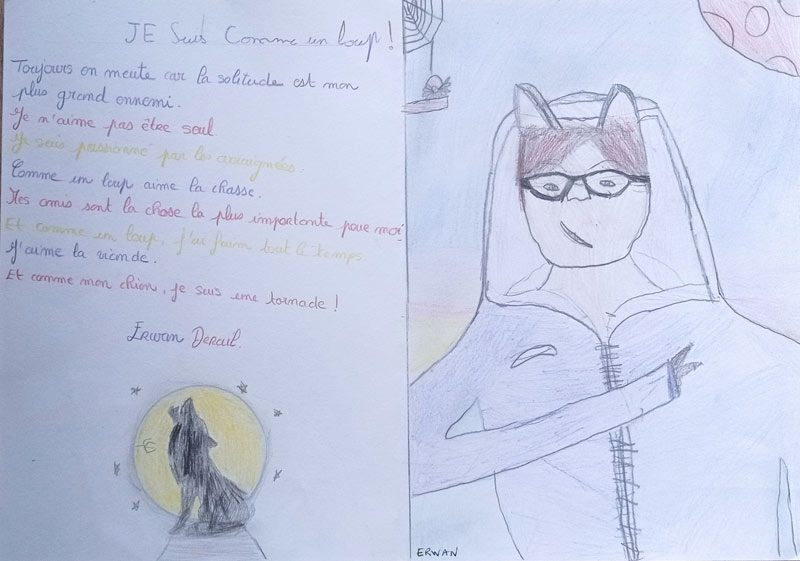 JE Suis Comme un loup !
Toujours en meute car la solitude est mon
plus grand ennemi.
Je n'aime pas être seul
Je suis passionné par les araignées.
Comme un loup aime la chasse.
Mes amis sont la chose la plus importante pour moi
Et comme un loup, j'ai faim tout le temps.
J'aime la viande.
Et comme mon chien, je suis une tornade !
Erwan
ERWAN